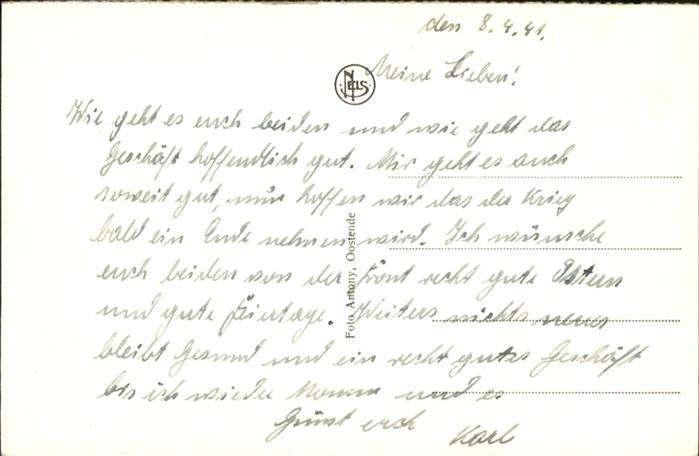 den 8.4.41.
Meine Lieben!
NELS
Wie geht es euch beiden und wie geht das
Geschäft hoffendlich gut. Mir geht es auch
soweit gut, nur hoffen wir das der Krieg
bald ein Ende nehmen wird. Ich wünsche
euch beiden von der Front recht gute Ostern
und gute Feiertage. Weiters nichts neues
bleibt Gesund und ein recht gutes Geschäft
bis ich wieder komme und es
Grüsst euch
Karl
Foto Antony, Oostende